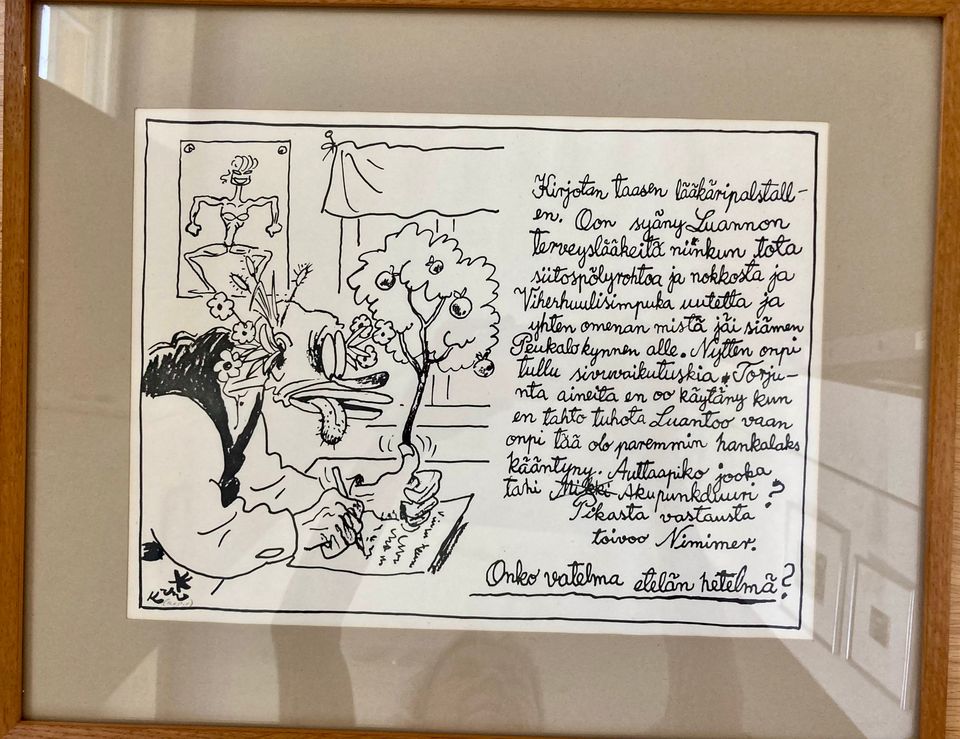 Kirjotan taasen lääkäripalstall-
en. Oon syäny Luannon
terveyslääkeitä niinkun tota
siitospölyrohtoa ja nokkosta ja
Viherhuulisimpuka uutetta ja
yhten omenan mistä jäi siämen
Peukalokynnen alle. Nytten onpi
tullu sivuvaikutuskia. Torju-
nta aineita en oo käytäny kun
en tahto tuhota Luantoo vaan
onpi tää olo paremmin hankalaks
kääntyny. Auttaapiko jooka
tahi Mikki Akupunkduuri?
Pikasta vastausta
toivoo Nimimer.
Onko vatelma etelän hetelmä?